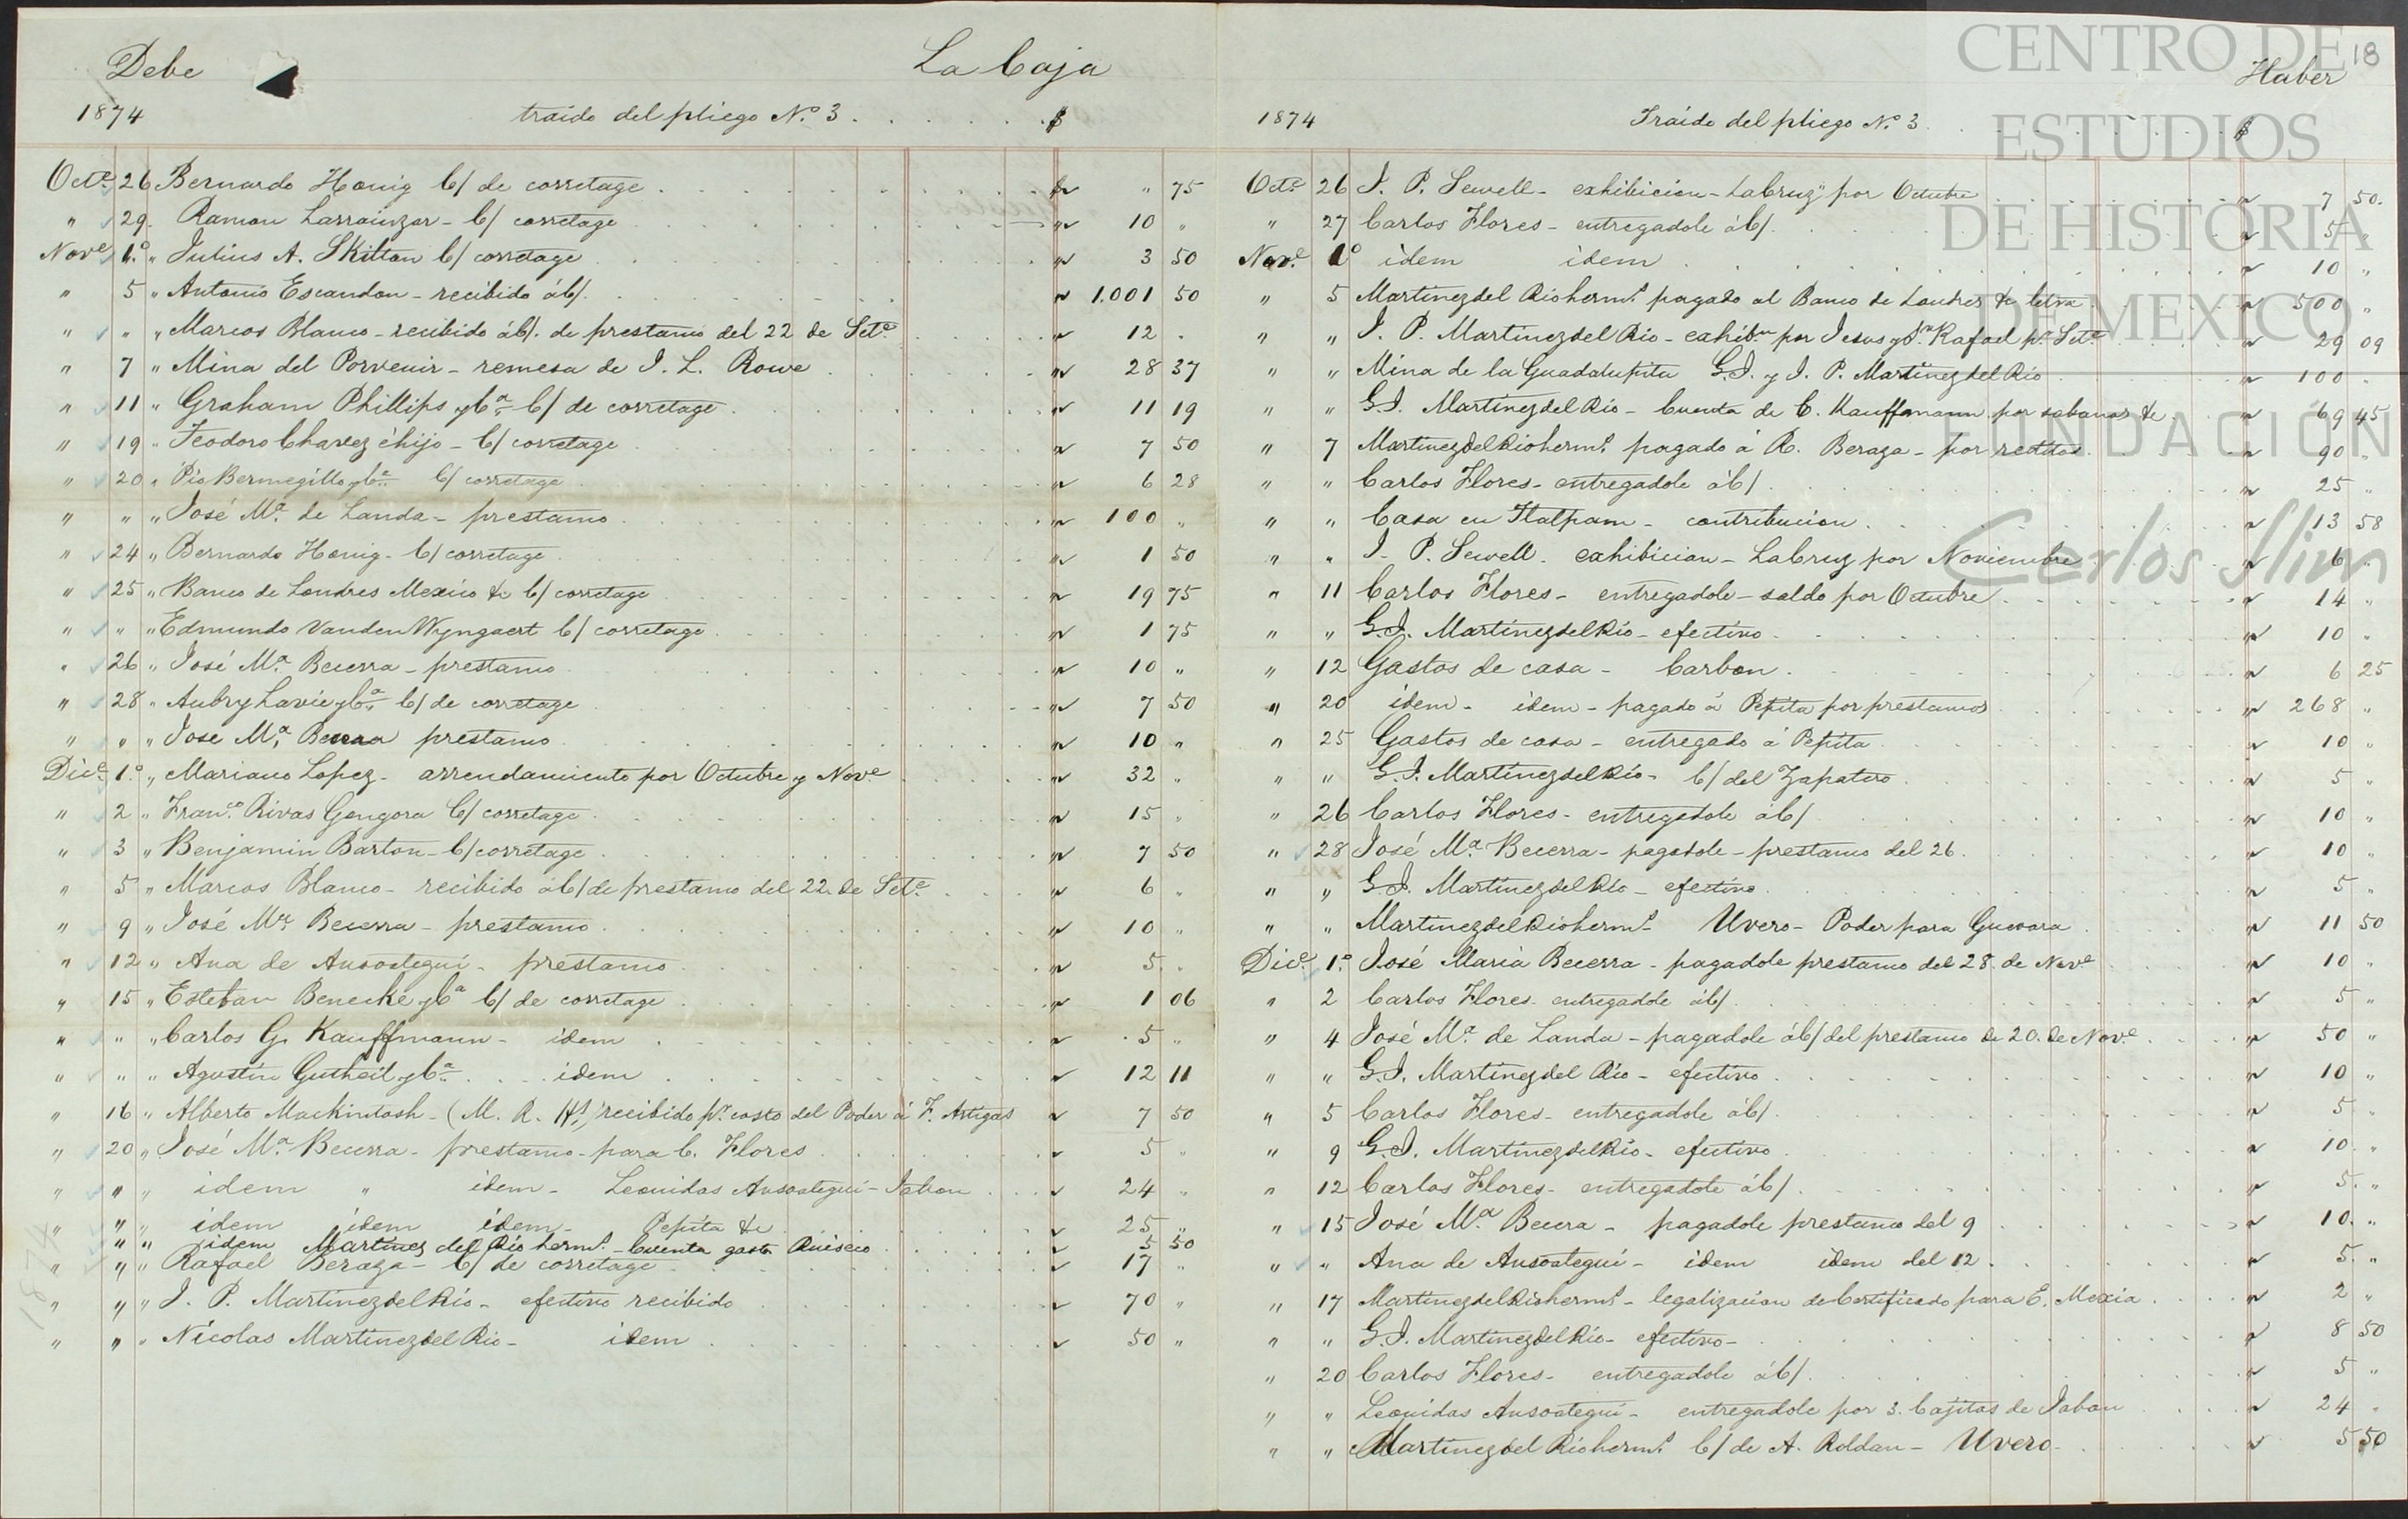 Debe La Caja
1874 traido del pliego No. 3 . . . . . . $
Octe. 26 Bernardo Honig C/ de corretage . . . $ " 75
" 29 " Ramon Larrainzar - C/ corretage . . . " 10 "
Nove. 1.o " Julius A. Skilton C/ corretage . . . " 3 50
" 5 " Antonio Escandon - recibido áC/. . . . " 1.001 50
" " " Marcos Blanco - recibido áC/. de prestamo del 22 de Sete. . . . " 12 "
" 7 " Mina del Porvenir - remesa de J. L. Rowe . . . " 28 37
" 11 " Graham Phillips y Ca. C/ de corretage . . . " 11 19
" 19 " Teodoro Chavez é hijo - C/ corretage . . . " 7 50
" 20 " Pio Bermegillo y Ca. C/ corretage . . . " 6 28
" " " José Ma. de Landa - prestamo . . . " 100 "
" 24 " Bernardo Honig - C/ corretage . . . " 1 50
" 25 " Banco de Londres Mexico &c C/ corretage . . . " 19 75
" " " Edmundo Vanden Wyngaert C/ corretage . . . " 1 75
" 26 " José Ma. Becerra - prestamo . . . " 10 "
" 28 " Aubry Lavie y Ca. C/ de corretage . . . " 7 50
" " " Jose Ma. Becerra prestamo . . . " 10 "
Dice. 1.o " Mariano Lopez - arrendamiento por Octubre y Nove. . . . " 32 "
" 2 " Franco. Rivas Gongora C/ corretage . . . " 15 "
" 3 " Benjamin Barton - C/ corretage . . . " 7 50
" 5 " Marcos Blanco - recibido áC/ de prestamo del 22 de Sete. . . . " 6 "
" 9 " José Ma. Becerra - prestamo . . . " 10 "
" 12 " Ana de Ansoategui - prestamo . . . " 5 "
" 15 " Esteban Benecke y Ca. C/ de corretage . . . " 1 06
" " " Carlos G. Kauffmann - idem . . . " 5 "
" " " Agustin Gutheil y Ca. . . . idem . . . " 12 11
" 16 " Alberto Mackintosh - (M. R. Hs.) recibido pr. costo del Poder á F. Artigas " 7 50
" 20 " José Ma. Becerra - prestamo - para C. Flores . . . " 5 "
" " " idem " idem - Leonidas Ansoategui - Jabon . . . " 24 "
" " " idem idem idem - Pepita &c . . . " 25 "
" " idem Martinez del Rio herms. - Cuenta gasto . . . " 5 50
" " " Rafael Beraza - C/ de corretage . . . " 17 "
" " " J. P. Martinez del Rio - efectivo recibido . . . " 70 "
" " " Nicolas Martinez del Rio - idem . . . " 50 "
Haber 18
1874 Traido del pliego No. 3 . . . $
Octe. 26 J. P. Sewell - exhibicion - LaCruz" por Octubre . . . " 7 50
" 27 Carlos Flores - entregadole áC/. . . . " 5 "
Nove. 1.o idem idem . . . " 10 "
" 5 Martinez del Rio herms. pagado al Banco de Londres &c letra " 500 "
" " J. P. Martinez del Rio - exhibon. por Jesus y Sn. Rafael pr. Sete. " 29 09
" " Mina de la Guadalupita G.J. y J. P. Martinez del Rio " 100 "
" " G.J. Martinez del Rio - Cuenta de C. Kauffmann por sabanas &c " 69 45
" 7 Martinez del Rio herms. pagado á R. Beraza - por reditos " 90 "
" " Carlos Flores - entregadole áC/. . . . " 25 "
" " Casa en Tlalpam - contribucion . . . " 13 58
" " J. P. Sewell - exhibicion - LaCruz por Noviembre " 6 "
" 11 Carlos Flores - entregadole - saldo por Octubre . . . " 14 "
" " G.J. Martinez del Rio - efectivo . . . " 10 "
" 12 Gastos de casa - Carbon . . . " 6 25
" 20 idem - idem - pagado á Pepita por prestamos . . . " 268 "
" 25 Gastos de casa - entregado á Pepita . . . " 10 "
" " G.J. Martinez del Rio - C/ del Zapatero . . . " 5 "
" 26 Carlos Flores - entregadole áC/ . . . " 10 "
" 28 José Ma. Becerra - pagadole - prestamo del 26 . . . " 10 "
" " G.J. Martinez del Rio - efectivo . . . " 5 "
" " Martinez del Rio herms. Uvero - Poder para Guevara . . . " 11 50
Dice. 1.o José Maria Becerra - pagadole prestamo del 28 de Nove. . . . " 10 "
" 2 Carlos Flores - entregadole áC/. . . . " 5 "
" 4 José Ma. de Landa - pagadole áC/ del prestamo de 20. de Nove. . . . " 50 "
" " G.J. Martinez del Rio - efectivo . . . " 10 "
" 5 Carlos Flores - entregadole áC/. . . . " 5 "
" 9 G.J. Martinez del Rio - efectivo . . . " 10 "
" 12 Carlos Flores - entregadole áC/. . . . " 5 "
" 15 José Ma. Becera - pagadole prestamo del 9 . . . " 10 "
" " Ana de Ansoategui - idem idem del 12 . . . " 5 "
" 17 Martinez del Rio herms. - legalizacion de Certificado para E. Mexia . . . " 2 "
" " G.J. Martinez del Rio - efectivo - . . . " 8 50
" 20 Carlos Flores - entregadole áC/. . . . " 5 "
" " Leonidas Ansoategui - entregadole por 3. Cajitas de Jabon . . . " 24 "
" " Martinez del Rio herms. C/ de A. Roldan - Uvero . . . " 5 50
CENTRO DE
ESTUDIOS
DE HISTORIA
DE MEXICO
FUNDACIÓN
Carlos Slim